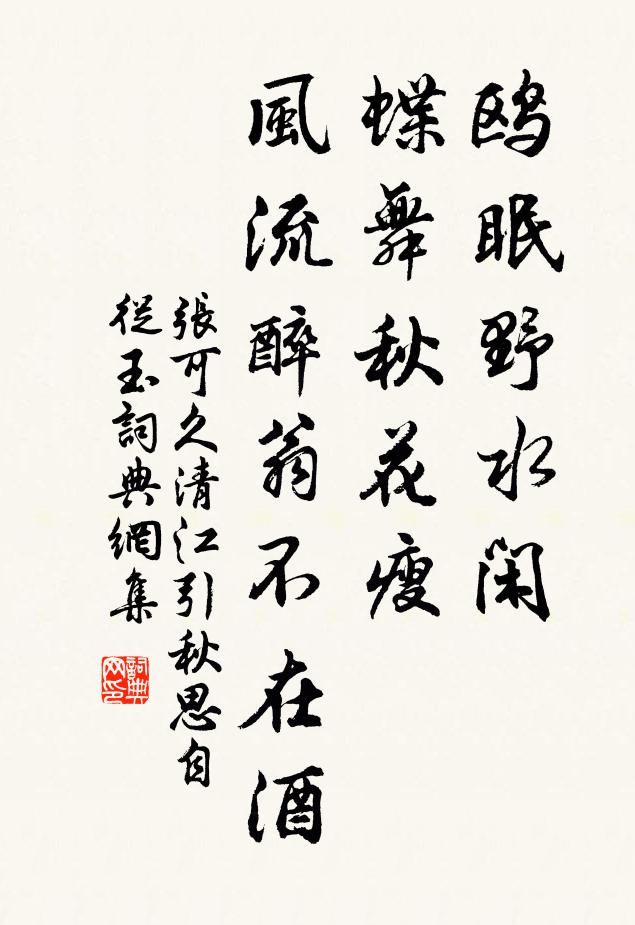 鸥眠野水闲
蝶舞秋花瘦
風流醉翁不在酒
張可久清江引秋思自
從玉詞典網集
詞典网印